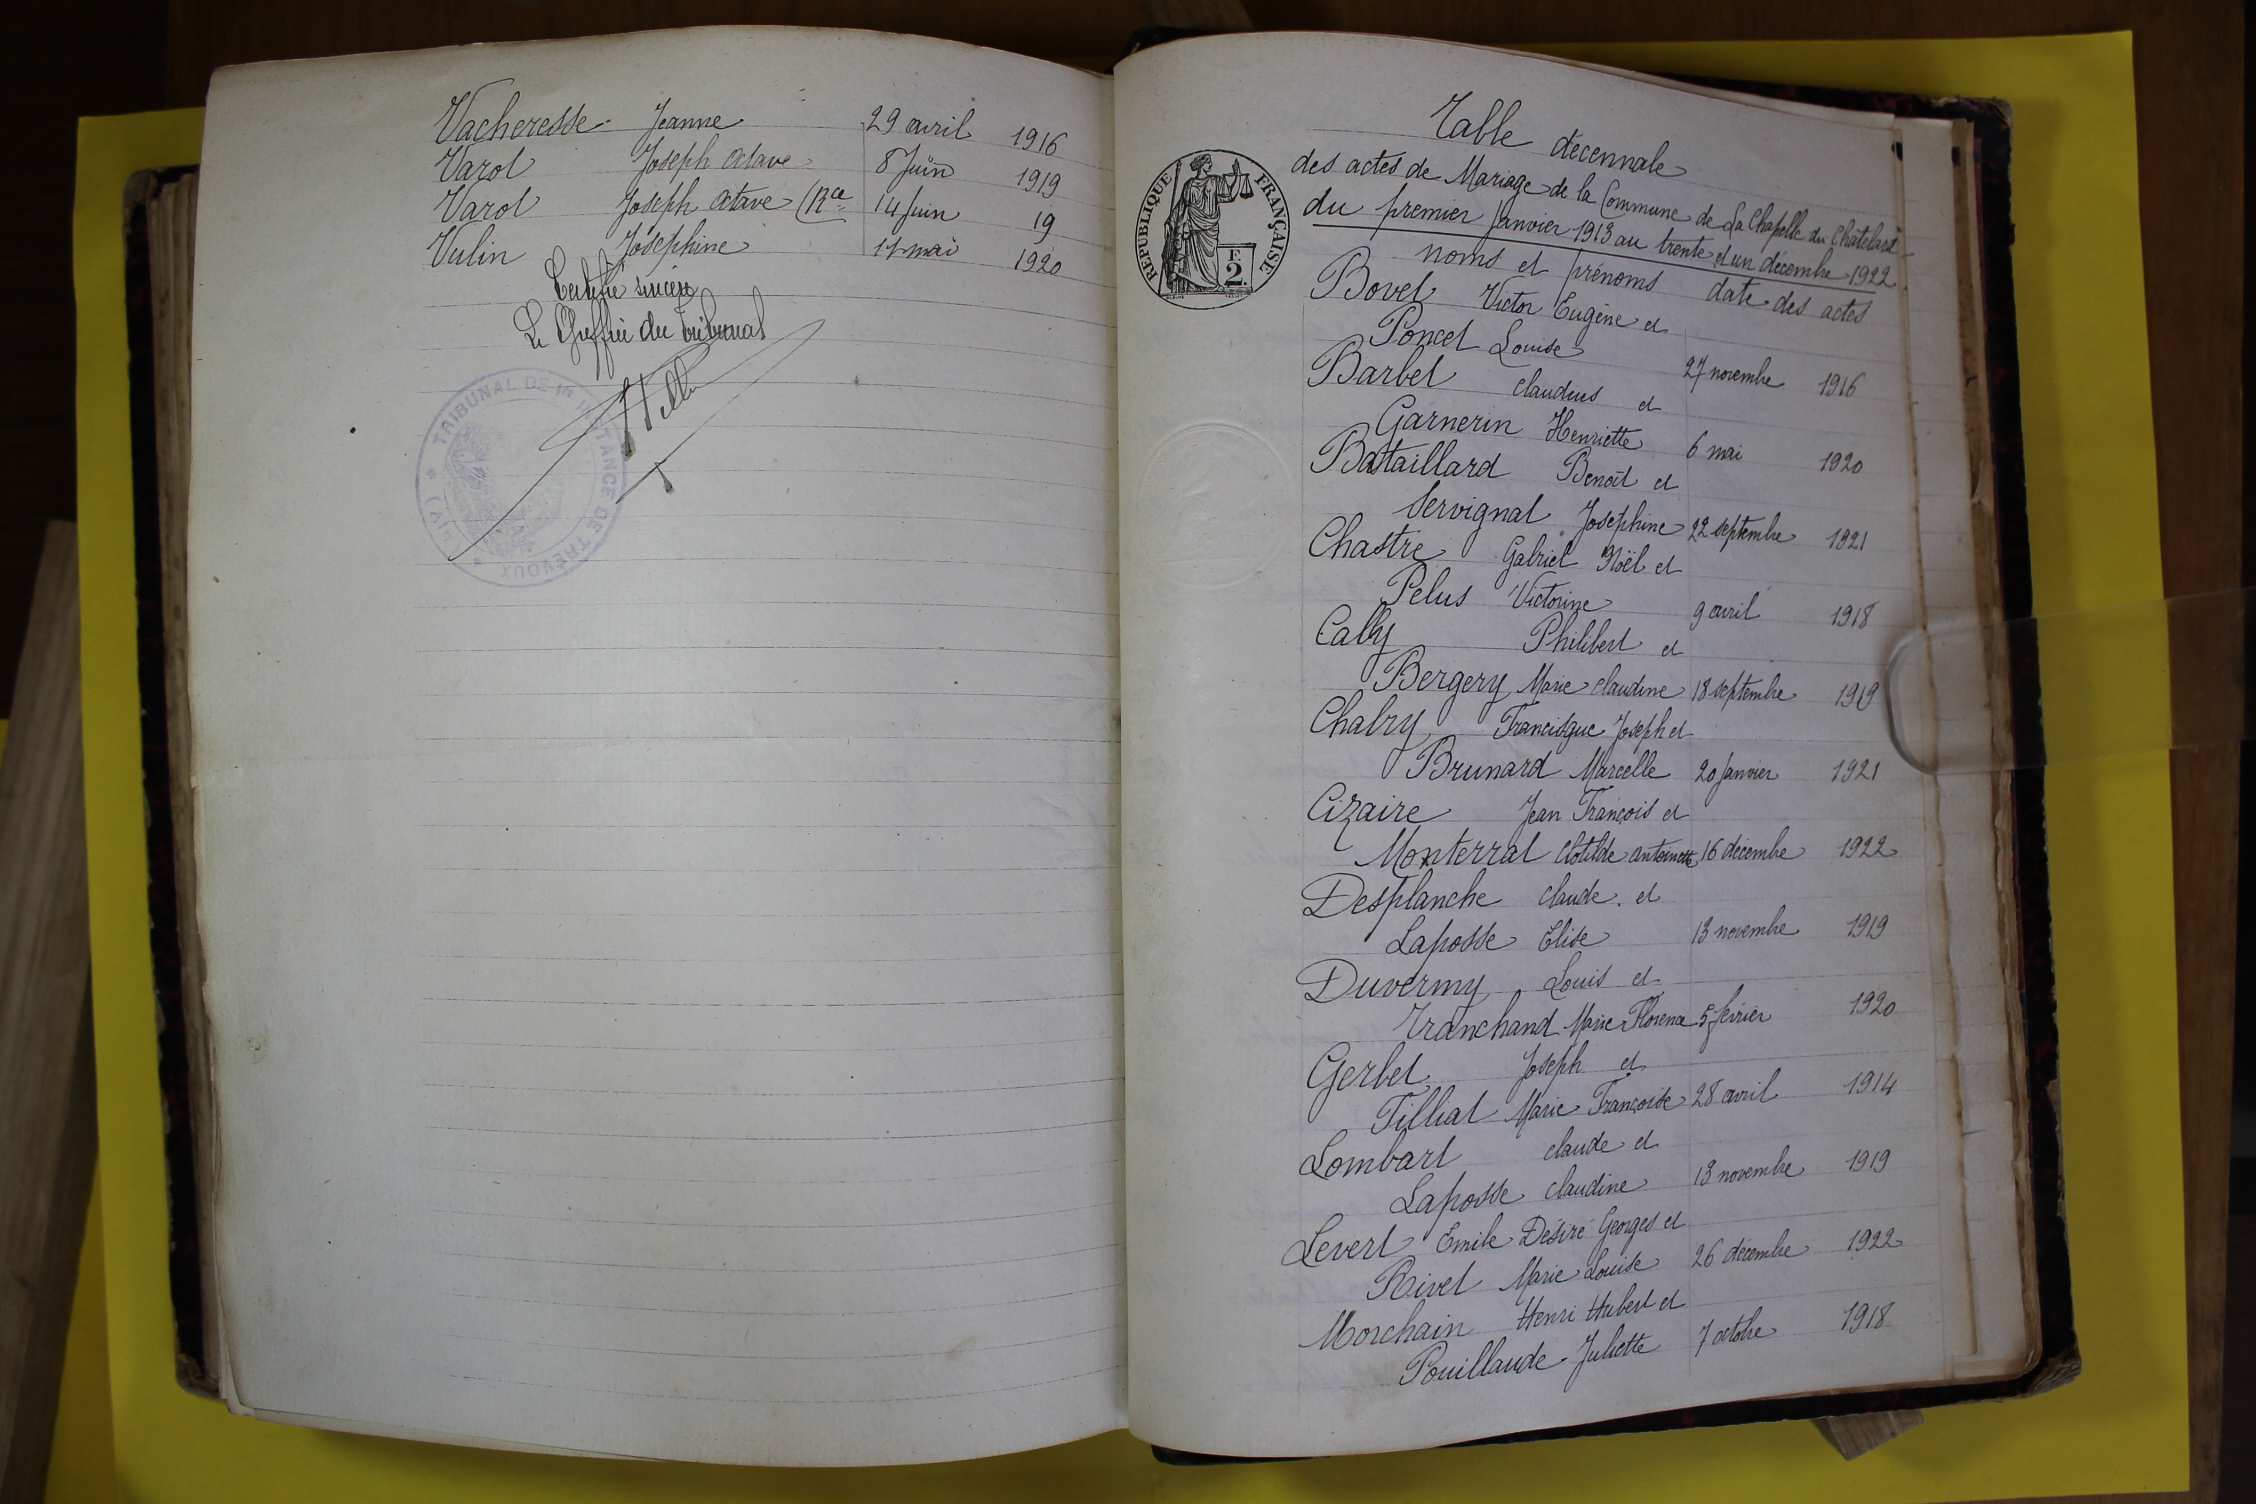 Vacheresse Jeanne 29 avril 1916
Varot Joseph Octave 8 Juin 1919
Varot Joseph Octave (Rce 14 Juin 19
Vulin Joséphine 11 mai 1920
Certifié sincère
Le Greffier du Tribunal
TRIBUNAL DE 1re INSTANCE DE TREVOUX
(AIN)
RÉPUBLIQUE FRANÇAISE
F.
2.
Table décennale
des actes de Mariage de la Commune de La Chapelle du Châtelard
du premier Janvier 1913 au trente et un décembre 1922
noms et prénoms date des actes
Bovet Victor Eugène et
Poncet Louise 27 novembre 1916
Barbet claudius et
Garnerin Henriette 6 mai 1920
Bataillard Benoît et
Servignat Joséphine 22 septembre 1921
Chastre Gabriel Noël et
Pelus Victorine 9 avril 1918
Cally Philibert et
Bergery Marie claudine 18 septembre 1919
Chabry Francisque Joseph et
Brunard Marcelle 20 Janvier 1921
Cizaire Jean François et
Monterrat Clotilde antoinette 16 décembre 1922
Desplanche claude et
Laposse Elise 13 novembre 1919
Duvermy Louis et
Tranchand Marie Florence 5 février 1920
Gerbet Joseph et
Tilliat Marie Françoise 28 avril 1914
Lombart claude et
Laposse claudine 13 novembre 1919
Levert Emile Désiré Georges et
Rivet Marie Louise 26 décembre 1922
Morchain Henri Hubert et
Pouillaude Juliette 7 octobre 1918